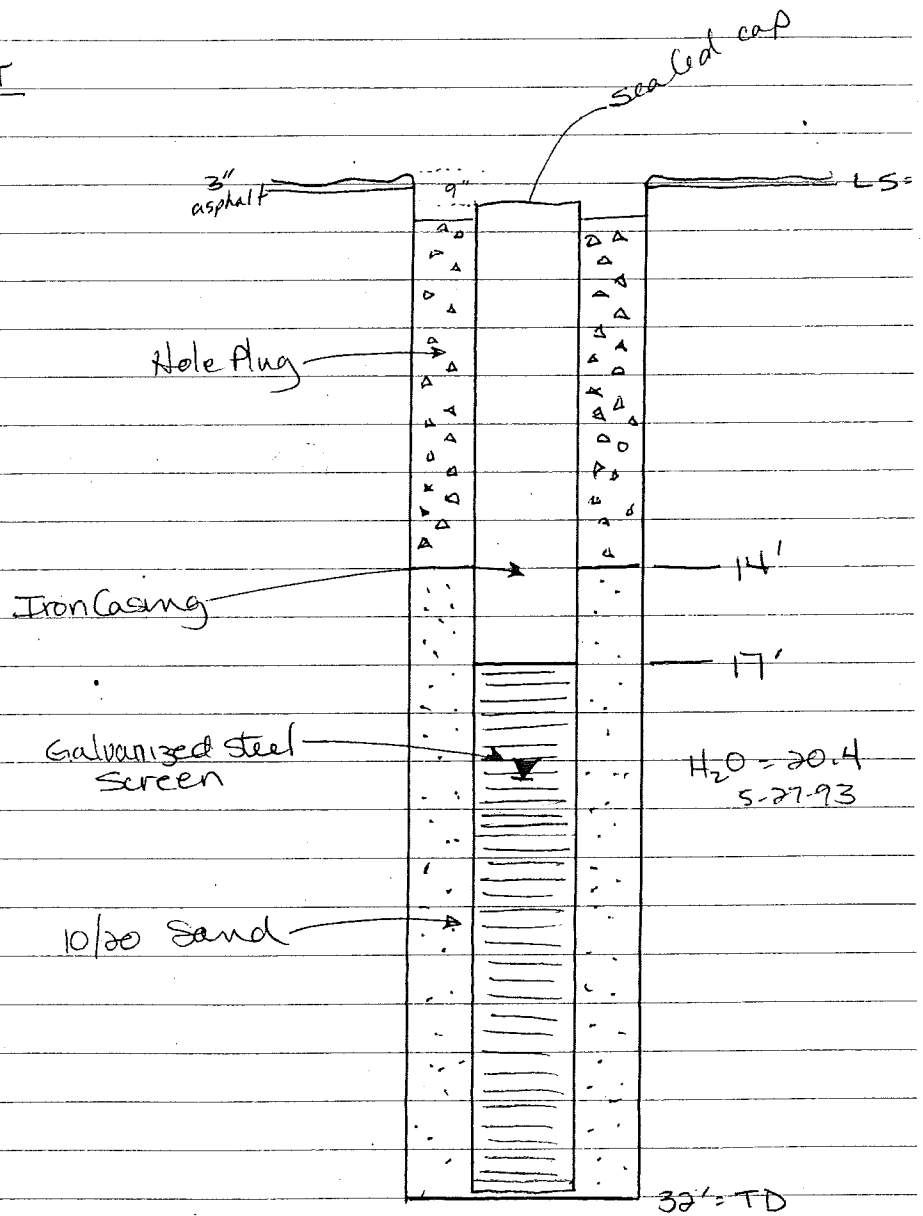 sealed cap
3"
asphalt
9"
LS=
Hole Plug
14'
Iron Casing
17'
Galvanized steel
screen
H₂O = 20.4
5-27-93
10/20 Sand
32' = TD